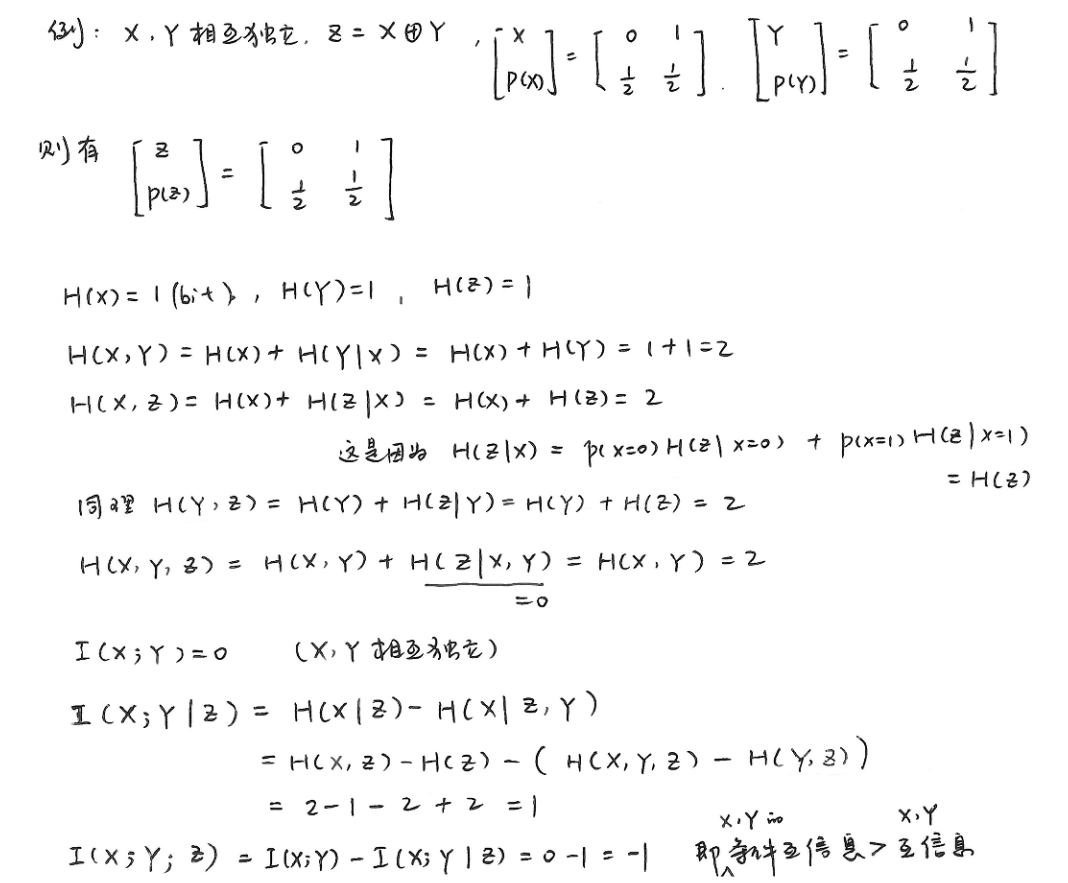 例: X, Y 相互独立, Z = X⊕Y, [X P(X)] = [0 1 1/2 1/2]. [Y P(Y)] = [0 1 1/2 1/2]
则有 [Z P(Z)] = [0 1 1/2 1/2]
H(X) = 1 (bit), H(Y)=1, H(Z) = 1
H(X,Y) = H(X) + H(Y|X) = H(X) + H(Y) = 1+1=2
H(X,Z) = H(X) + H(Z|X) = H(X) + H(Z) = 2
这是因为 H(Z|X) = P(X=0) H(Z|X=0) + P(X=1) H(Z|X=1)
= H(Z)
同理 H(Y,Z) = H(Y) + H(Z|Y) = H(Y) + H(Z) = 2
H(X,Y,Z) = H(X,Y) + H(Z|X,Y) = H(X,Y) = 2
=0
I(X;Y)=0 (X,Y 相互独立)
I(X;Y|Z) = H(X|Z) - H(X|Z,Y)
= H(X,Z) - H(Z) - (H(X,Y,Z) - H(Y,Z))
= 2-1-2+2 = 1
I(X;Y;Z) = I(X;Y) - I(X;Y|Z) = 0-1 = -1 即 X,Y的 条件互信息 > X,Y 互信息